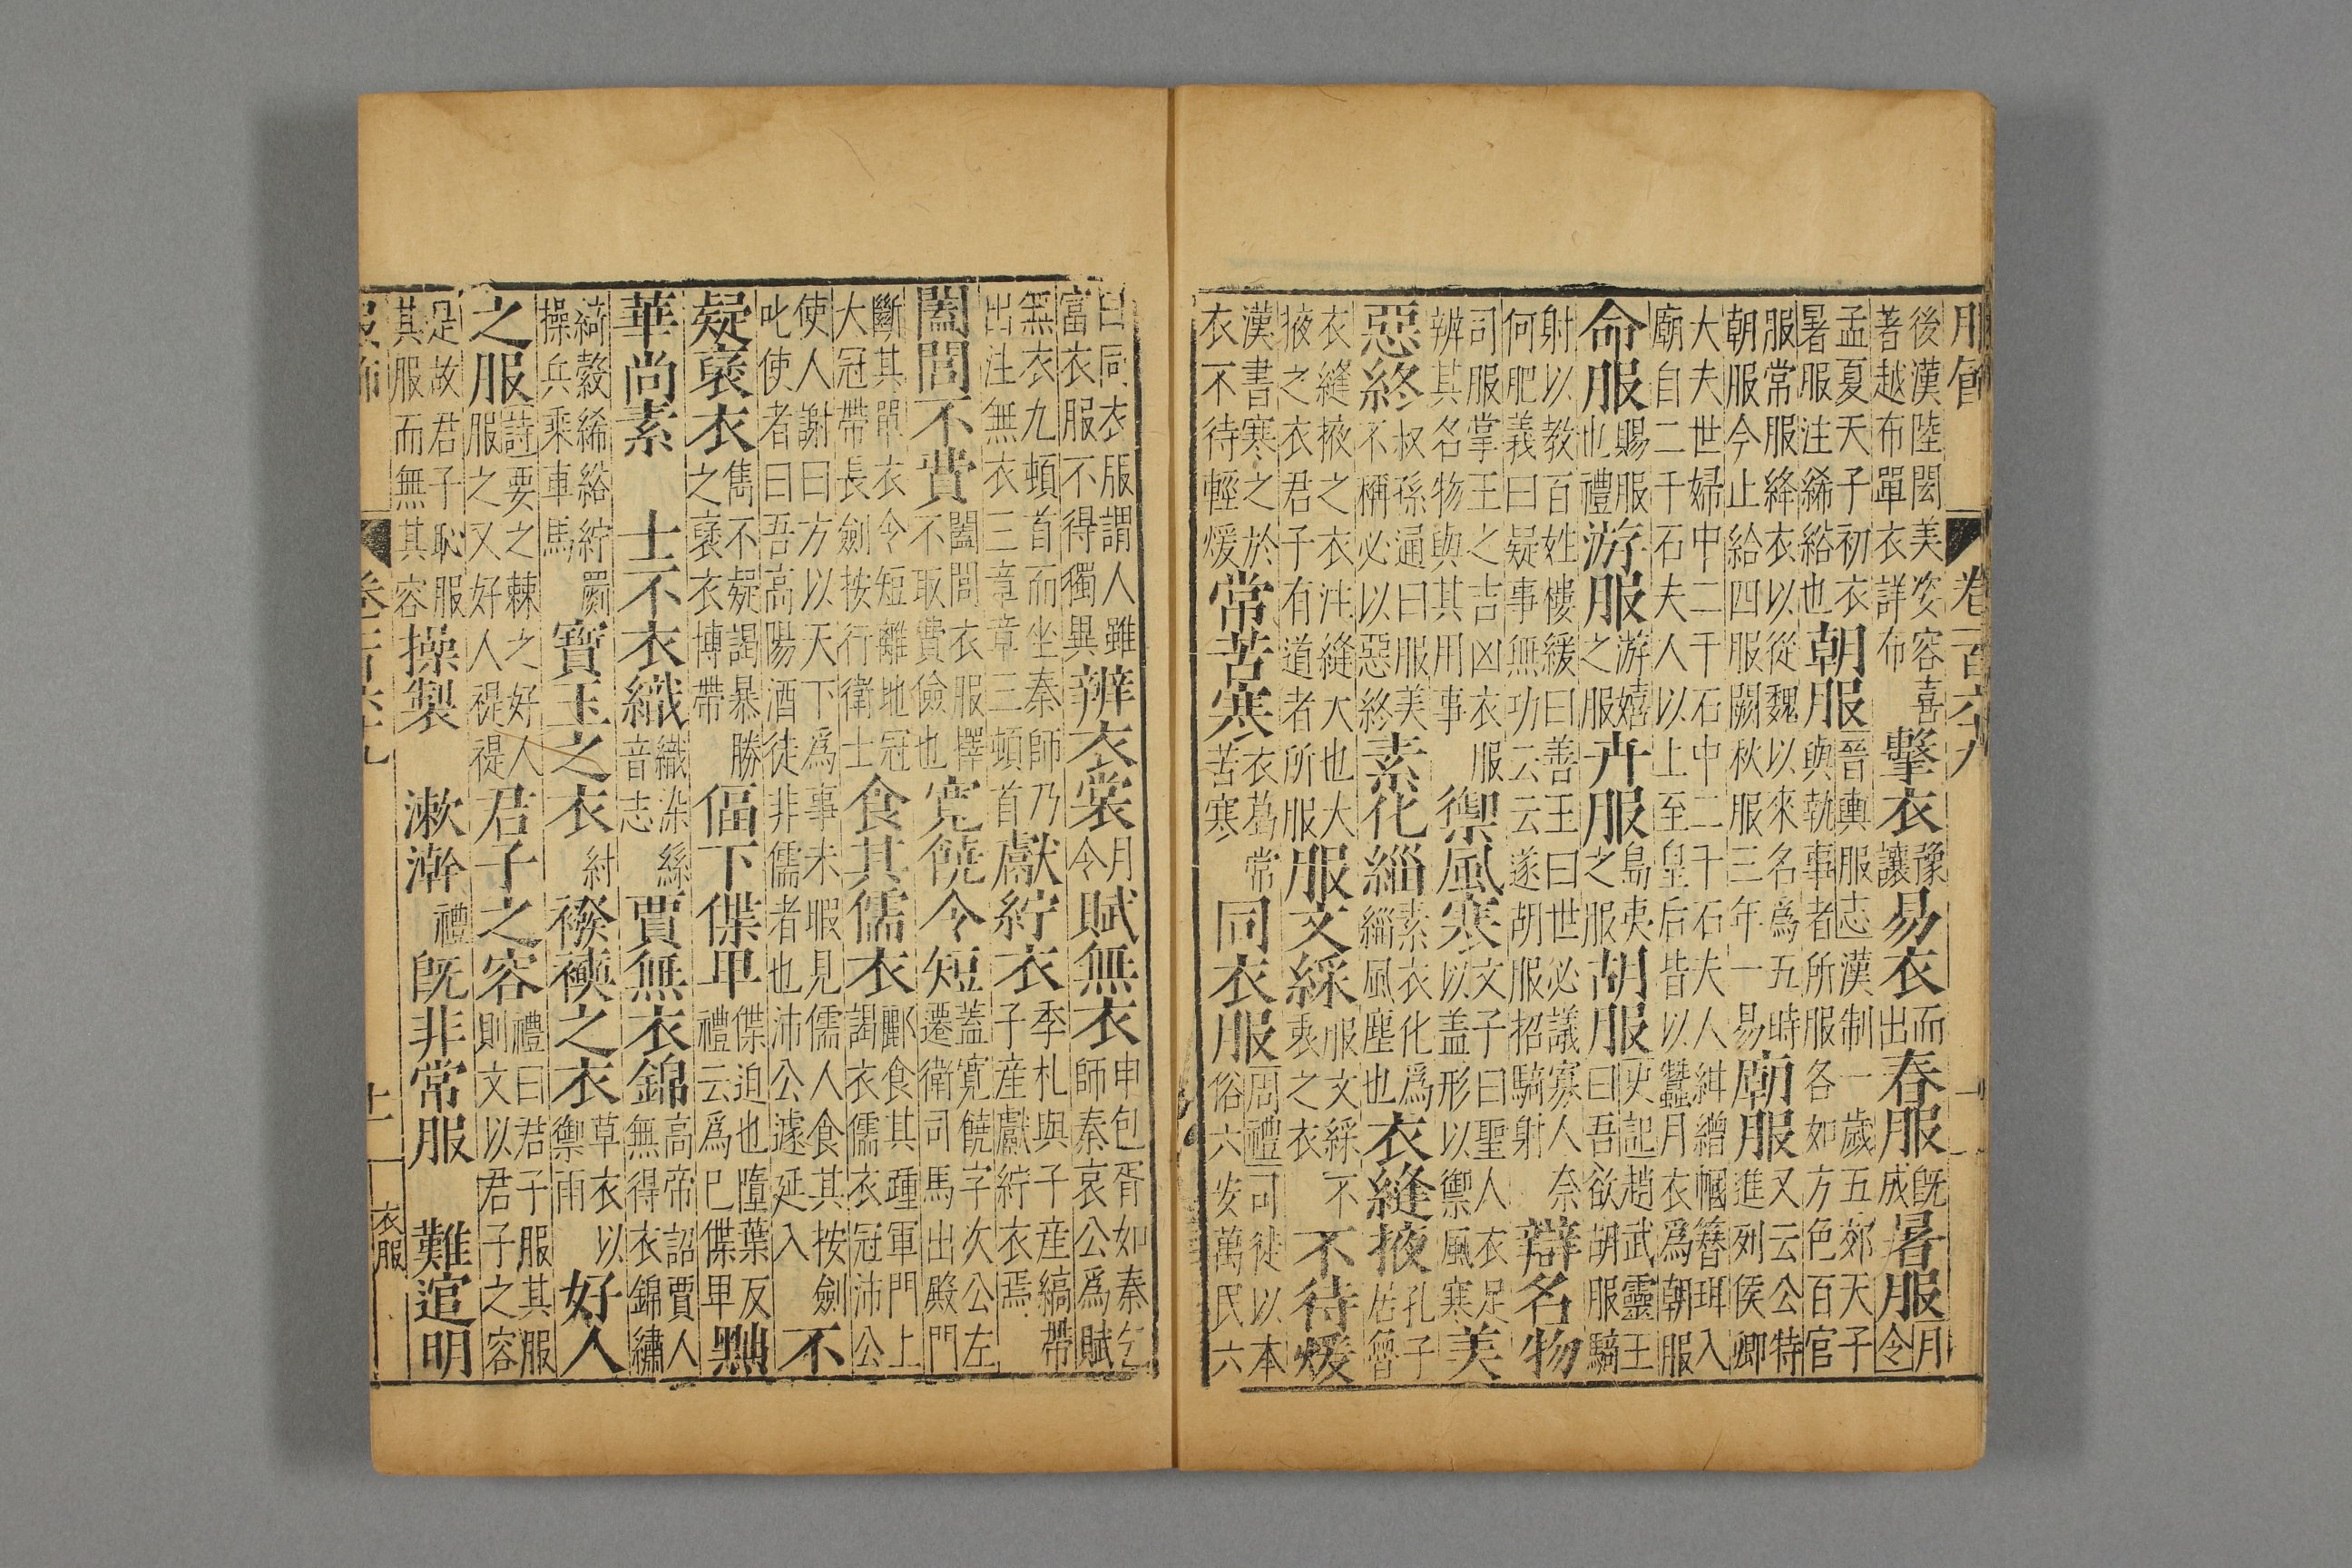 服飾 卷一百六十九
後漢陸閎美姿容喜著越布單衣詳布 擊衣 豫讓 易衣 而出 春服 既成 暑服 月令
孟夏天子初衣暑服注絺綌也 朝服 晉輿服志漢制一歲五郊天子與執事者所服各如方色百官
服常服絳衣以從魏以來名為五時朝服今止給四服闕秋服三年一易 廟服 又云公特進列侯卿
大夫世婦中二千石中二千石夫人紺繒幗簪珥入廟自二千石夫人以上至皇后皆以蠶月衣為朝服
命服 賜服也禮 游服 游嬉之服 卉服 島夷之服 胡服 史記趙武靈王曰吾欲胡服騎
射以教百姓樓緩曰善王曰世必議寡人奈何肥義曰疑事無功云云遂胡服招騎射 辯名物
司服掌王之吉凶衣服辨其名物與其用事 禦風寒 文子曰聖人衣足以盖形以禦風寒 美
惡終 叔孫通曰服美不稱必以惡終 素化緇 素衣化為緇風塵也 衣縫掖 孔子居魯
衣縫掖之衣注縫大也大掖之衣君子有道者所服 服文綵 服文綵不衷之衣 不待煖
漢書寒之於衣不待輕煖 常苦寒 衣葛常苦寒 同衣服 周禮司徒以本俗六安萬民六
曰同衣服謂人雖富衣服不得獨異 辨衣裳 月令 賦無衣 申包胥如秦乞師秦哀公為賦
無衣九頓首而坐秦師乃出注無衣三章章三頓首 獻紵衣 季札與子産縞帶子産獻紵衣焉
闔閭不費 闔閭衣服擇不取費儉也 寬饒令短 蓋寬饒字次公左遷衛司馬出殿門
斷其單衣令短離地冠大冠帶長劍按行衛士 食其儒衣 酈食其踵軍門上謁衣儒衣冠沛公
使人謝曰方以天下為事未暇見儒人食其按劍叱使者曰吾高陽酒徒非儒者也沛公遽延入 不
疑襃衣 雋不疑謁暴勝之襃衣博帶 偪下偞甲 偞迫也墮葉反禮云為巳偞甲 黜
華尚素 士不衣織 織染絲音志 賈無衣錦 高帝詔賈人無得衣錦繡
綺縠絺綌紵罽操兵乘車馬 寳玉之衣 紂 襏襫之衣 草衣以禦雨 好人
之服 詩要之棘之好人服之又好人禔禔 君子之容 禮曰君子服其服則文以君子之容
是故君子恥服其服而無其容 操製 漱澣 禮 既非常服 難逭明
服飾 卷一百六十九 十二 衣服